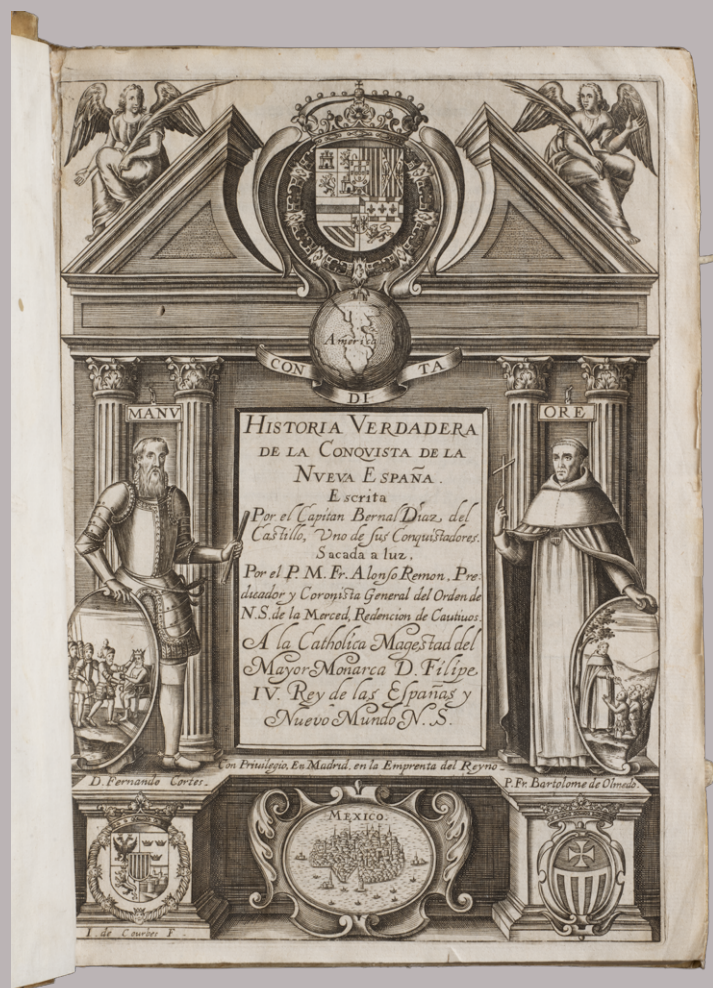 America
CON DI TA
MANV
ORE
HISTORIA VERDADERA
DE LA CONQVISTA DE LA
NVEVA ESPAÑA.
Escrita
Por el Capitan Bernal Diaz, del
Castillo, Vno de sus Conquistadores.
Sacada a luz,
Por el P. M. Fr. Alonso Remon, Pre-
dicador y Coronista General del Orden de
N. S. de la Merced, Redencion de Cautiuos.
A la Catholica Magestad del
Mayor Monarca D. Filipe
IV. Rey de las Españas y
Nueuo Mundo N. S.
Con Priuilegio, En Madrid, en la Emprenta del Reyno
D. Fernando Cortes.
P. Fr. Bartolome de Olmedo.
MEXICO.
I. de Courbes F.